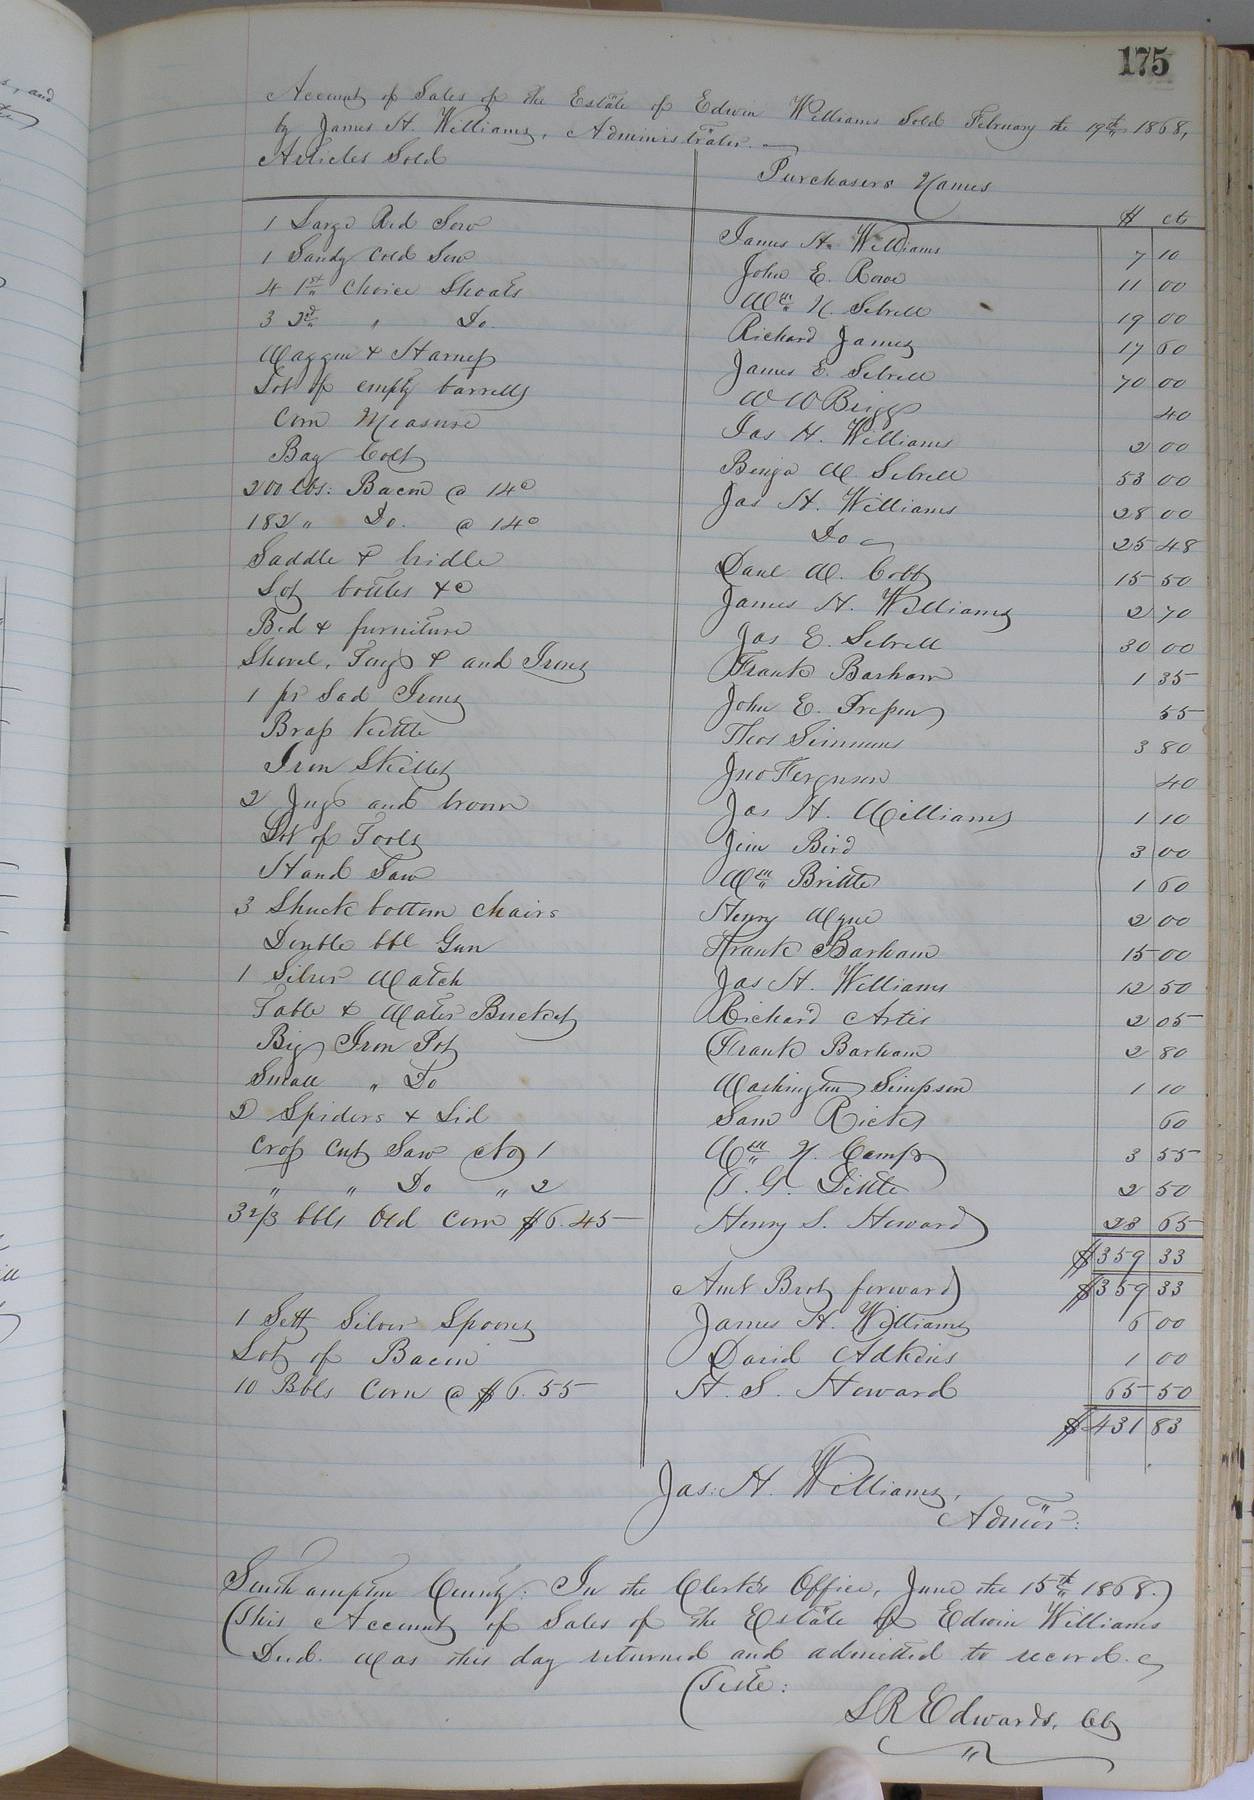 175
Account of Sales of the Estate of Edwin Williams Sold February the 19th 1868,
by James H. Williams, Administrator.
Articles Sold Purchasers Names
$ cts
1 Large Red Sow James H. Williams 7 10
1 Sandy Cold Sow John E. Rowe 11 00
4 1st Choice Shoats Wm N. Sebrell 19 00
3 2d " Do. Richard James 17 60
Waggon & Harness James E. Sebrell 70 00
Lot of empty barrells W W Briggs 40
Corn Measure Jas H. Williams 2 00
Bay Colt Benja W. Sebrell 53 00
200 lbs: Bacon @ 14c Jas H. Williams 28 00
182 " Do. @ 14c Do 25 48
Saddle & bridle Danl W. Cobb 15 50
Lot bottles &c James H. Williams 2 70
Bed & furniture Jas E. Sebrell 30 00
Shovel, Tongs & and Irons Frank Barham 1 35
1 pr Sad Irons John E. 55
Brass Kettle Theos Simmons 3 80
Iron Skillet Jno Ferguson 40
2 Jugs and broom Jas H. Williams 1 10
Lot of Tools Jim Bird 3 00
Hand Saw Wm Brittle 1 60
3 Shuck bottom chairs Henry 2 00
Double bbl Gun Frank Barham 15 00
1 Silver Watch Jas H. Williams 12 50
Table & Water Bucket Richard Artis 2 05
Big Iron Pot Frank Barham 2 80
Small " Do Washington Simpson 1 10
2 Spiders & Lid Sam Ricks 60
Cross Cut Saw No 1 Wm N. Camp 3 55
" " Do " 2 P. G. Little 2 50
3 2/3 bbls Old Corn $6.45 Henry S. Howard 23 65
$359 33
Amt Brot forward $359 33
1 Sett Silver Spoons James H. Williams 6 00
Lot of Bacon David Adkins 1 00
10 Bbls Corn @ $6.55 H. S. Howard 65 50
$431 83
Jas: H. Williams,
Admor:
Southampton County: In the Clerk's Office, June the 15th 1868.
This Account of Sales of the Estate of Edwin Williams
Decd. was this day returned and admitted to record.
Teste:
L R Edwards, CC